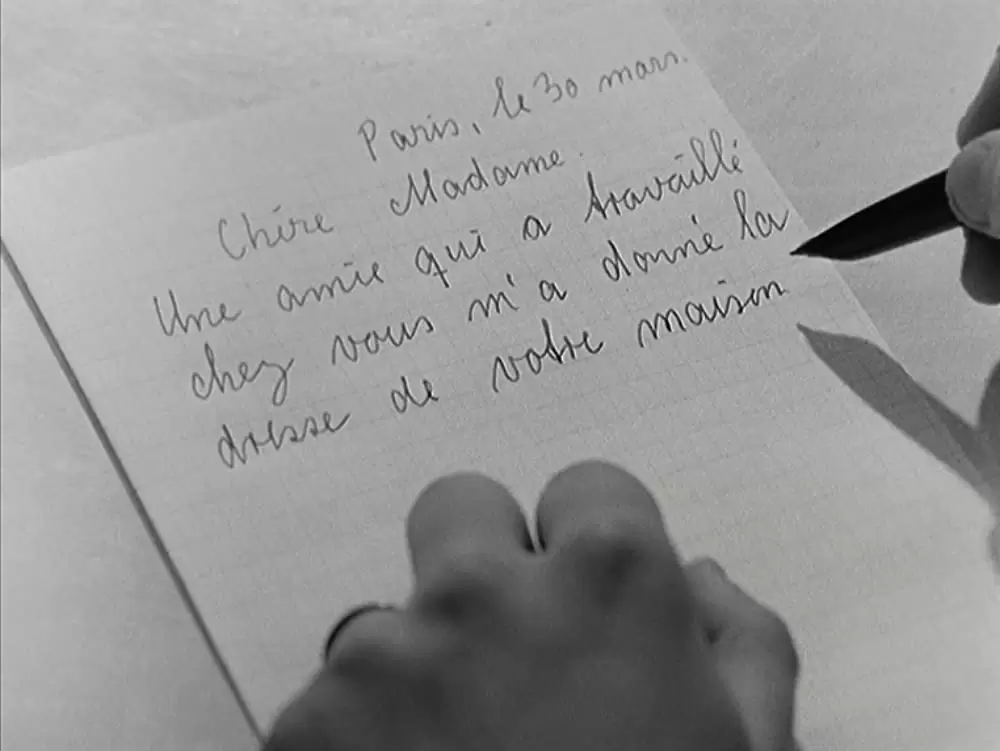 Paris, le 30 mars.
Chère Madame.
Une amie qui a travaillé
chez vous m'a donné la
dresse de votre maison